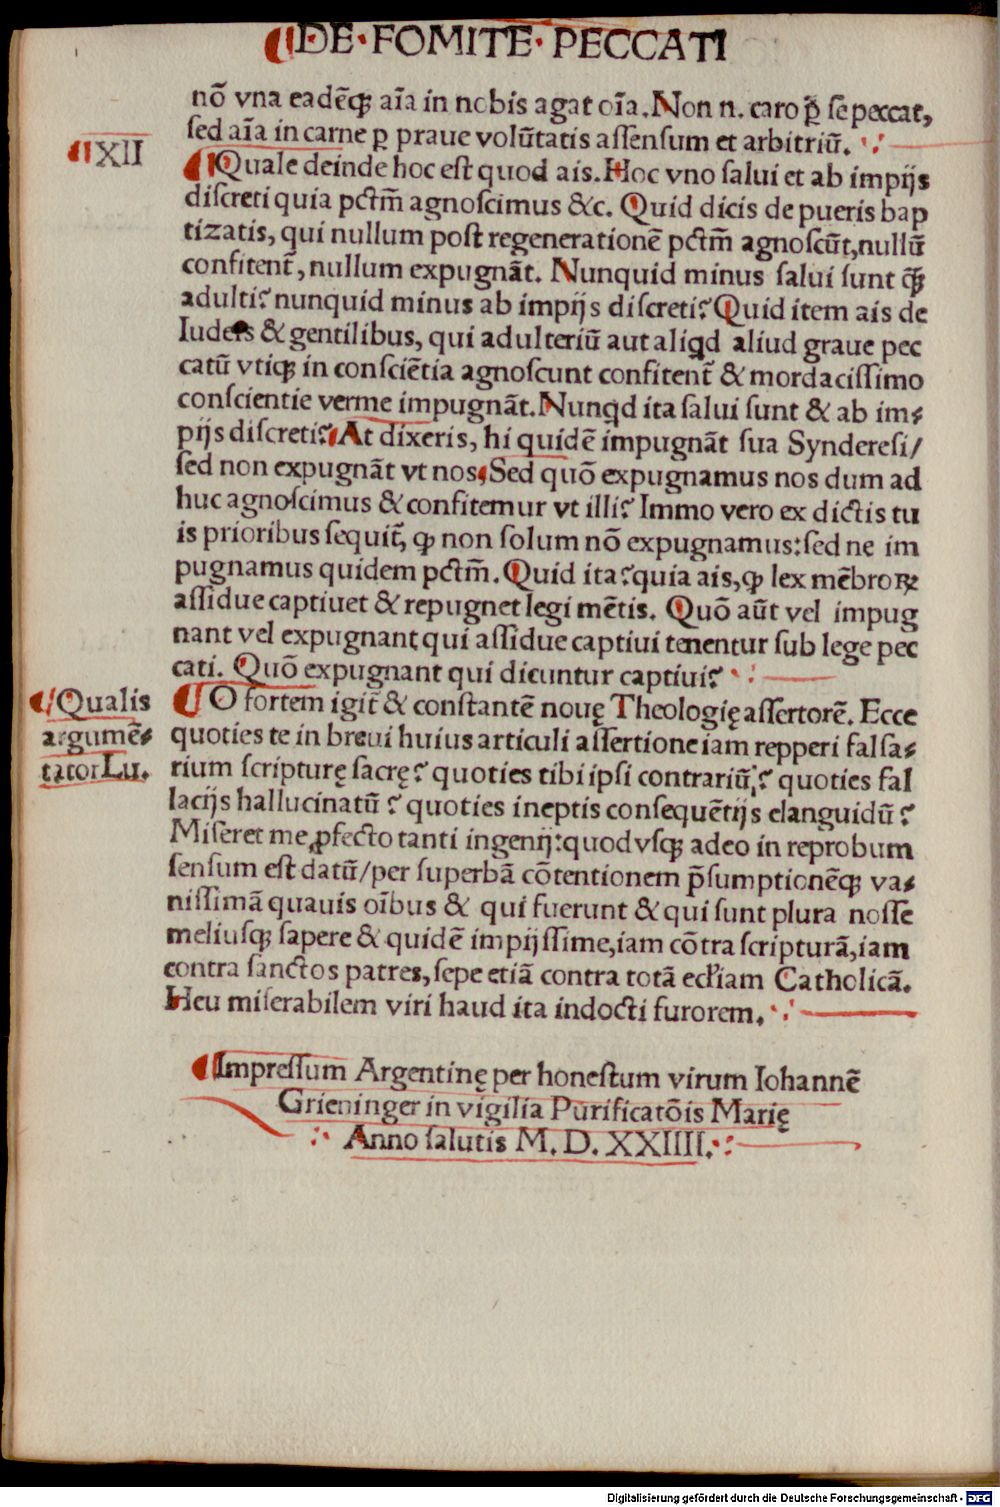 ¶DE·FOMITE·PECCATI
nõ vna eadẽq́ꝫ aĩa in nobis agat oĩa. Non n. caro ꝑ̃ se peccat,
sed aĩa in carne ꝑ praue volũtatis aſſenſum et arbitriũ.
¶XII
¶Quale deinde hoc eſt quod ais. Hoc vno ſalui et ab impijs
diſcreti quia pctm̃ agnoſcimus &c. Quid dicis de pueris bap
tizatis, qui nullum poſt regenerationẽ pctm̃ agnoſcũt, nullũ
confitent̃, nullum expugnãt. Nunquid minus ſalui ſunt q̃ꝫ
adulti? nunquid minus ab impijs diſcreti? Quid item ais de
Iudeis & gentilibus, qui adulteriũ aut aliqd aliud graue pec
catũ vtiqꝫ in conſciẽtia agnoſcunt confitent̃ & mordaciſſimo
conſcientie verme impugnãt. Nunqd ita ſalui ſunt & ab im⸗
pijs diſcreti? At dixeris, hi quidẽ impugnãt ſua Syndereſi/
ſed non expugnãt vt nos. Sed quõ expugnamus nos dum ad
huc agnoſcimus & confitemur vt illi? Immo vero ex dictis tu
is prioribus ſequit̃, ꝙ non ſolum nõ expugnamus: ſed ne im
pugnamus quidem pctm̃. Quid ita? quia ais, ꝙ lex mẽbroꝝ
aſſidue captiuet & repugnet legi mẽtis. Quõ aũt vel impug
nant vel expugnant, qui aſſidue captiui tenentur ſub lege pec
cati. Quõ expugnant qui dicuntur captiui?
¶Qualis
argumẽ⸗
tator Lu.
¶O fortem igit̃ & conſtantẽ nouę Theologię aſſertorẽ. Ecce
quoties te in breui huius articuli aſſertione iam repperi falſa⸗
rium ſcripturę ſacrę? quoties tibi ipſi contrariũ? quoties fal
lacijs hallucinatũ? quoties ineptis conſequẽtijs elanguidũ?
Miſeret me ꝓfecto tanti ingenij: quod vſqꝫ adeo in reprobum
ſenſum eſt datũ/ per ſuperbã cõtentionem p̃ſumptionẽqꝫ va⸗
niſſimã quauis oĩbus & qui fuerunt & qui ſunt plura noſſe
meliuſqꝫ ſapere & quidẽ impijſſime, iam cõtra ſcripturã, iam
contra ſanctos patres, ſepe etiã contra totã eccl̃iam Catholicã.
Heu miſerabilem viri haud ita indocti furorem.
¶Impreſſum Argentinę per honeſtum virum Iohannẽ
Grieninger in vigilia Purificatõis Marię
Anno ſalutis M. D. XXIIII.
Digitalisierung gefördert durch die Deutsche Forschungsgemeinschaft - DFG